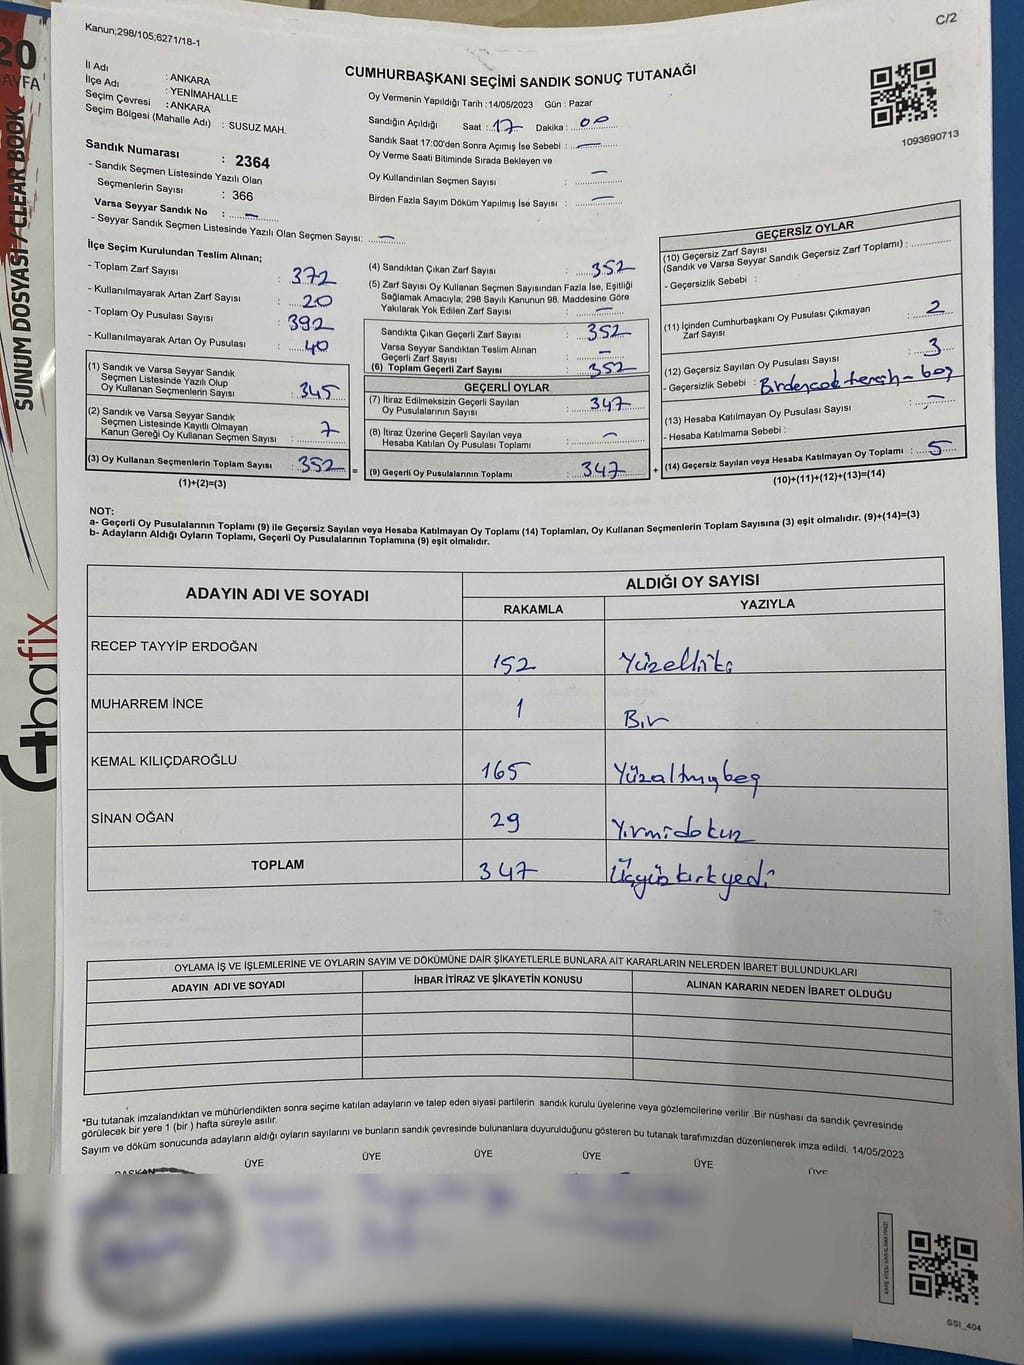 Kanun;298/105;6271/18-1
C/2
İl Adı : ANKARA
İlçe Adı : YENİMAHALLE
Seçim Çevresi : ANKARA
Seçim Bölgesi (Mahalle Adı) : SUSUZ MAH.
Sandık Numarası : 2364
- Sandık Seçmen Listesinde Yazılı Olan
Seçmenlerin Sayısı : 366
Varsa Seyyar Sandık No : —
- Seyyar Sandık Seçmen Listesinde Yazılı Olan Seçmen Sayısı: —
CUMHURBAŞKANI SEÇİMİ SANDIK SONUÇ TUTANAĞI
Oy Vermenin Yapıldığı Tarih :14/05/2023 Gün : Pazar
Sandığın Açıldığı Saat : 17 Dakika : 00
Sandık Saat 17:00'den Sonra Açımış İse Sebebi : —
Oy Verme Saati Bitiminde Sırada Bekleyen ve
Oy Kullandırılan Seçmen Sayısı : —
Birden Fazla Sayım Döküm Yapılmış İse Sayısı : —
1093690713
İlçe Seçim Kurulundan Teslim Alınan;
- Toplam Zarf Sayısı : 372
- Kullanılmayarak Artan Zarf Sayısı : 20
- Toplam Oy Pusulası Sayısı : 392
- Kullanılmayarak Artan Oy Pusulası : 40
(1) Sandık ve Varsa Seyyar Sandık
Seçmen Listesinde Yazılı Olup
Oy Kullanan Seçmenlerin Sayısı : 345
(2) Sandık ve Varsa Seyyar Sandık
Seçmen Listesinde Kayıtlı Olmayan
Kanun Gereği Oy Kullanan Seçmen Sayısı : 7
(3) Oy Kullanan Seçmenlerin Toplam Sayısı : 352 =
(1)+(2)=(3)
(4) Sandıktan Çıkan Zarf Sayısı : 352
(5) Zarf Sayısı Oy Kullanan Seçmen Sayısından Fazla İse, Eşitliği
Sağlamak Amacıyla; 298 Sayılı Kanunun 98. Maddesine Göre
Yakılarak Yok Edilen Zarf Sayısı : —
Sandıkta Çıkan Geçerli Zarf Sayısı : 352
Varsa Seyyar Sandıktan Teslim Alınan
Geçerli Zarf Sayısı : —
(6) Toplam Geçerli Zarf Sayısı : 352
GEÇERLİ OYLAR
(7) İtiraz Edilmeksizin Geçerli Sayılan
Oy Pusulalarının Sayısı : 347
(8) İtiraz Üzerine Geçerli Sayılan veya
Hesaba Katılan Oy Pusulası Toplamı : —
(9) Geçerli Oy Pusulalarının Toplamı : 347 +
GEÇERSİZ OYLAR
(10) Geçersiz Zarf Sayısı
(Sandık ve Varsa Seyyar Sandık Geçersiz Zarf Toplamı) :
- Geçersizlik Sebebi :
(11) İçinden Cumhurbaşkanı Oy Pusulası Çıkmayan
Zarf Sayısı : 2
(12) Geçersiz Sayılan Oy Pusulası Sayısı : 3
- Geçersizlik Sebebi : Birdençok tercih - boş
(13) Hesaba Katılmayan Oy Pusulası Sayısı : —
- Hesaba Katılmama Sebebi :
(14) Geçersiz Sayılan veya Hesaba Katılmayan Oy Toplamı : 5
(10)+(11)+(12)+(13)=(14)
NOT:
a- Geçerli Oy Pusulalarının Toplamı (9) ile Geçersiz Sayılan veya Hesaba Katılmayan Oy Toplamı (14) Toplamları, Oy Kullanan Seçmenlerin Toplam Sayısına (3) eşit olmalıdır. (9)+(14)=(3)
b- Adayların Aldığı Oyların Toplamı, Geçerli Oy Pusulalarının Toplamına (9) eşit olmalıdır.
ADAYIN ADI VE SOYADI
ALDIĞI OY SAYISI
RAKAMLA YAZIYLA
RECEP TAYYİP ERDOĞAN 152 Yüzelliiki
MUHARREM İNCE 1 Bir
KEMAL KILIÇDAROĞLU 165 Yüzaltmışbeş
SİNAN OĞAN 29 Yirmidokuz
TOPLAM 347 Üçyüzkırkyedi
OYLAMA İŞ VE İŞLEMLERİNE VE OYLARIN SAYIM VE DÖKÜMÜNE DAİR ŞİKAYETLERLE BUNLARA AİT KARARLARIN NELERDEN İBARET BULUNDUKLARI
ADAYIN ADI VE SOYADI
İHBAR İTİRAZ VE ŞİKAYETİN KONUSU
ALINAN KARARIN NEDEN İBARET OLDUĞU
*Bu tutanak imzalandıktan ve mühürlendikten sonra seçime katılan adayların ve talep eden siyasi partilerin sandık kurulu üyelerine veya gözlemcilerine verilir .Bir nüshası da sandık çevresinde
görülecek bir yere 1 (bir ) hafta süreyle asılır.
Sayım ve döküm sonucunda adayların aldığı oyların sayılarını ve bunların sandık çevresinde bulunanlara duyurulduğunu gösteren bu tutanak tarafımızdan düzenlenerek imza edildi. 14/05/2023
BAŞKAN ÜYE ÜYE ÜYE ÜYE ÜYE ÜYE
SSI_404
20
SAYFA
SUNUM DOSYASI / CLEAR BOOK
bafix